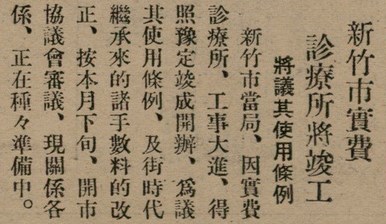 新竹市實費
診療所將竣工
將議其使用條例
新竹市當局、因實費
診療所、工事大進、得
照豫定竣成開辦、爲議
其使用條例、及街時代
繼承來的諸手數料的改
正、按本月下旬、開市
協議會審議、現關係各
係、正在種々準備中。